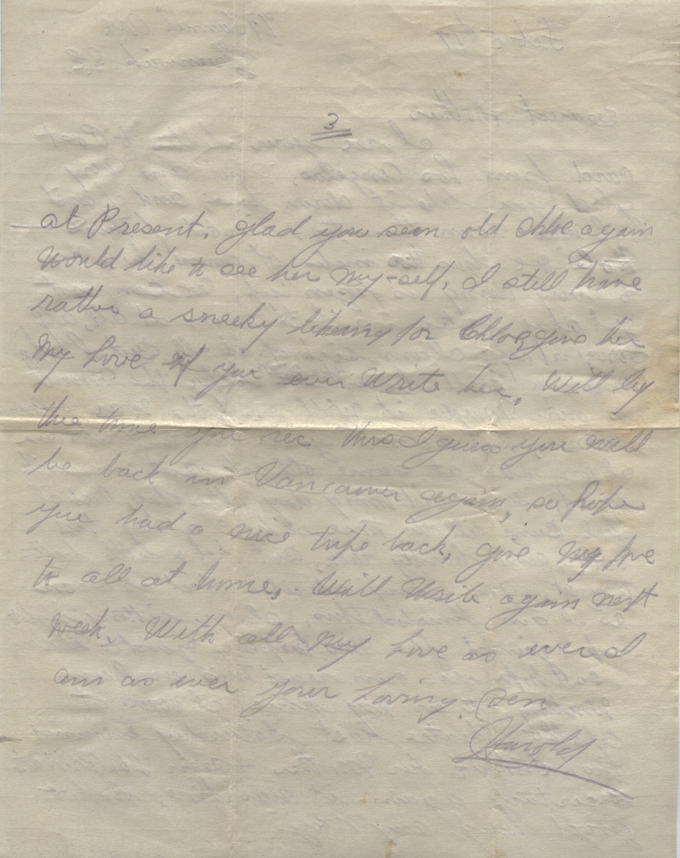 3
at Present. glad you seen old Chloe again
Would like to see her My-self, I still have
rather a sneeky likeing for Chloe give her
My Love if you ever Write her, Well by
the time you rec this I guess you will
be back in Vancouver again, so hope
you had a nice trip back, give My love
to all at home, Will Write again next
week. With all My Love as ever I
am as ever your loving. Son
Harold